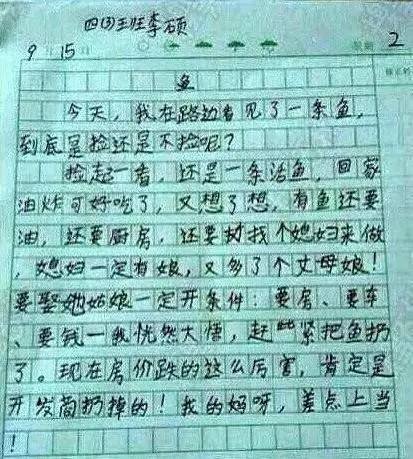 四(3)班班李硕
9月15日 星期2
鱼
今天，我在路边看见了一条鱼，
到底是捡还是不捡呢？
捡起一看，还是一条活鱼，回家
油炸可好吃了，又想了想，有鱼还要
油，还要厨房，还要找个媳妇来做
，媳妇一定有娘，又多了个丈母娘！
要娶她姑娘一定开条件：要房、要车
、要钱一我恍然大悟，赶紧把鱼扔
了。现在房价跌的这么厉害，肯定是
开发商扔掉的！我的妈呀，差点上当
！